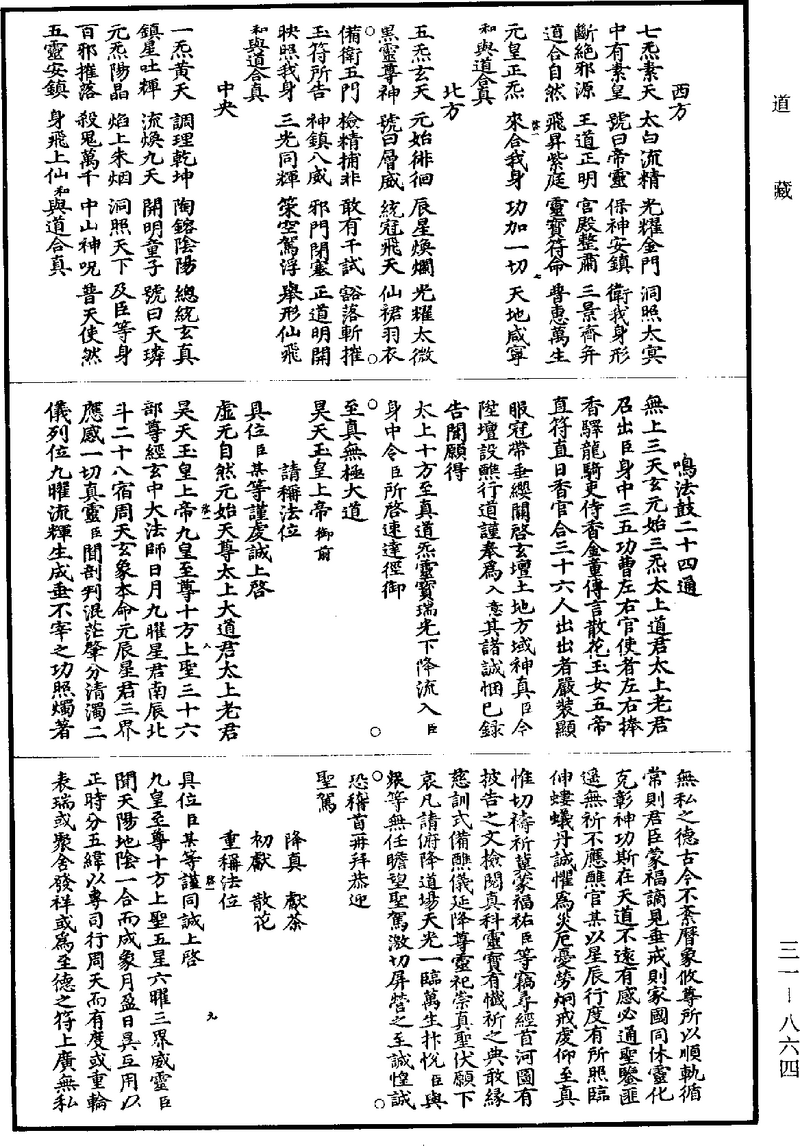 道藏
西方
七炁素天　太白流精　光耀金門　洞照太冥
中有素皇　號曰帝靈　保神安鎮　衛我身形
斷絕邪源　王道正明　宮殿整肅　三景齊并
道合自然　飛昇紫庭　靈寶符命　普惠萬生
元皇正炁　來合我身　功加一切　天地咸寧
和與道合真
北方
五炁玄天　元始徘徊　辰星煥爛　光耀太微
黑靈尊神　號曰層威　統冠飛天　仙裙羽衣
備衛五門　檢精捕非　敢有干試　豁落斬摧
玉符所告　神鎮八威　邪門閉塞　正道明開
映照我身　三光同輝　策空駕浮　舉形仙飛
和與道合真
中央
一炁黃天　調理乾坤　陶鎔陰陽　總統玄真
鎮星吐輝　流煥九天　開明童子　號曰天璘
元炁陽晶　焰上朱烟　洞照天下　及臣等身
百邪摧落　殺鬼萬千　中山神呪　普天使然
五靈安鎮　身飛上仙　和與道合真
鳴法鼓二十四通
無上三天玄元始三炁太上道君太上老君
召出臣身中三五功曹左右官使者左右捧
香驛龍騎吏侍香金童傳言散花玉女五帝
直符直日香官合三十六人出出者嚴裝顯
服冠帶垂纓關啓玄壇土地方域神真臣今
陞壇設醮行道謹奉爲入意其諸誠悃已錄
告聞願得
太上十方至真道炁靈寶瑞光下降流入臣
身中令臣所啓速達徑御
至真無極大道
昊天玉皇上帝御前
請稱法位
具位臣某等謹虔誠上啓
虛无自然元始天尊太上大道君太上老君
昊天玉皇上帝九皇至尊十方上聖三十六
部尊經玄中大法師日月九曜星君南辰北
斗二十八宿周天玄象本命元辰星君三界
應感一切真靈臣聞剖判混茫肇分清濁二
儀列位九曜流輝生成垂不宰之功照燭著
無私之德古今不紊曆象攸尊所以順軌循
常則君臣蒙福謫見垂戒則家國同休靈化
克彰神功斯在天道不遠有感必通聖鑒匪
遥無祈不應醮官某以星辰行度有所照臨
伸螻蟻丹誠懼爲災厄憂勞炯戒虔仰至真
惟切禱祈冀蒙福祐臣等竊尋經首河圖有
披告之文檢閱真科靈寶有懺祈之典敢緣
慈訓式備醮儀延降尊靈祀崇真聖伏願下
哀凡請俯降道場天光一臨萬生抃悅臣與
眾等無任瞻望聖駕激切屏營之至誠惶誠
恐稽首再拜恭迎
聖駕
降真　獻茶
初獻　散花
重稱法位
具位臣某等謹同誠上啓
九皇至尊十方上聖五星六曜三界威靈臣
聞天陽地陰一合而成象月盈日昃互用以
正時分五緯以專司行周天而有度或重輪
表瑞或聚舍發祥或爲至德之符上廣無私
三一—八六四